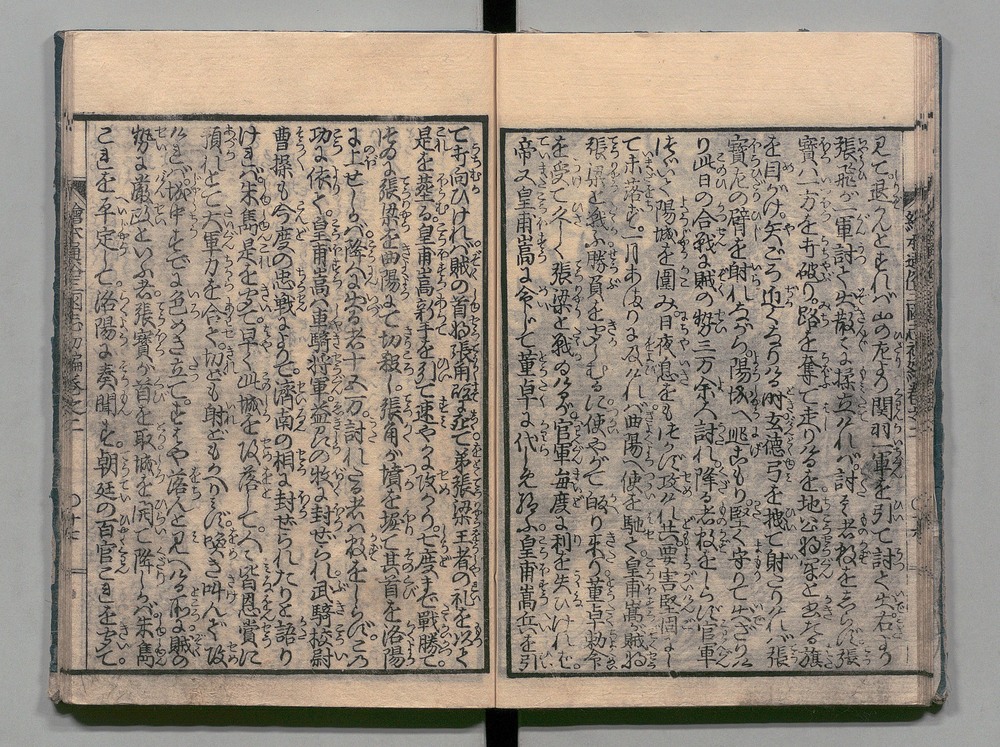 見て退んとすれバ山の左より関羽一軍を引て討て出右より
張飛が一軍討て出散々に揉立けれバ討るゝ者数をしらず張
寶八一方を打破り路を奪て走りけるを地公将軍と書たる旗
を目がけ矢ごろ近くなりける時玄徳弓を搜て射たりけれバ張
寶左の臂を射れながら陽城へ逃こもり堅く守りて出ざりけ
り此日の合戦に賊の勢三万余人討れ降る者数をしらず官軍
つゞいて陽城を圍み日夜息をもつがず攻れ共要害堅固にし
て未落ず一月あまりに及けれバ曲陽へ使を馳て皇甫嵩が賊将
張梁と戦ふ勝負を
を受て久しく張梁と戦ひけるが官軍毎度に利を失ひければ
帝又皇甫嵩に命じて董卓に代しめ給ふ皇甫嵩兵を引
て打向ひければ賊の首将張角
是を葬る皇甫嵩新手を引て速やかに攻かゝり七度まで戰勝て
つゐに張梁を曲陽にて切殺し張角が墳を掘て其首を洛陽
に上せしかバ降人に出る者十五万討れたる者ハ数をしらずこの
功に依て皇甫嵩ハ車騎将軍益州の牧に封ぜられ武騎校尉
曹操も今度の忠戦によりて濟南の相に封ぜられたりと語り
ければ朱雋是を聞て早く此城を攻落して人々皆恩賞に
預れとて大軍力を合て切ども射どもかへりミず喚き叫んで攻
けれバ城中すでに色めき立てすハや落んと見へける所に賊の
勢に厳政といふ者張寶が首を取城を開て降りしかバ朱雋
こと〴〵を平定して洛陽に奏聞す朝廷の百官